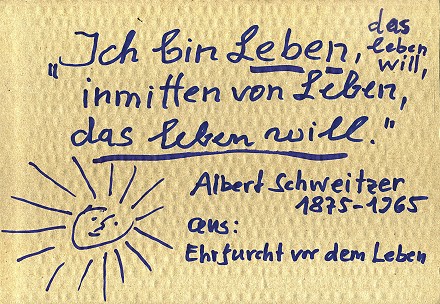 „Ich bin Leben, das leben will,
inmitten von Leben,
das leben will."
Albert Schweitzer
1875-1965
aus:
Ehrfurcht vor dem Leben